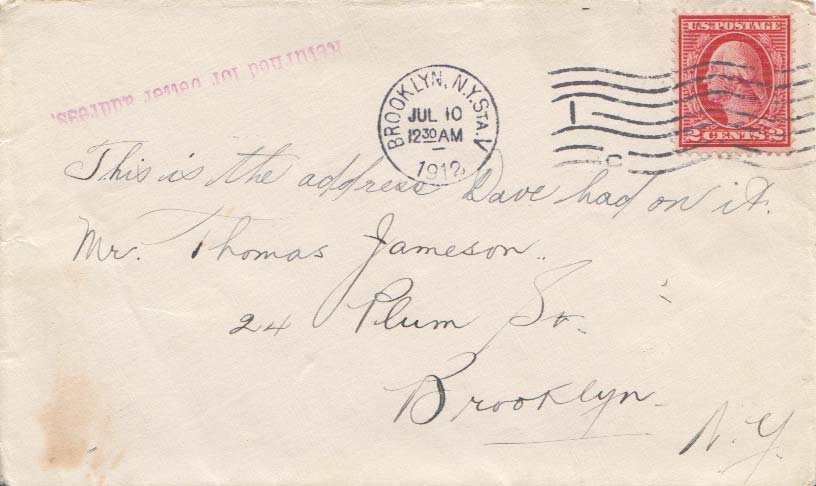 Returned for better address.
U.S. POSTAGE
2 CENTS 2
BROOKLYN, N.Y. STA. V
JUL 10
12 30 AM
1912
This is the address Dave had on it.
Mr. Thomas Jameson.
24 Plum St.
Brooklyn
N.Y.